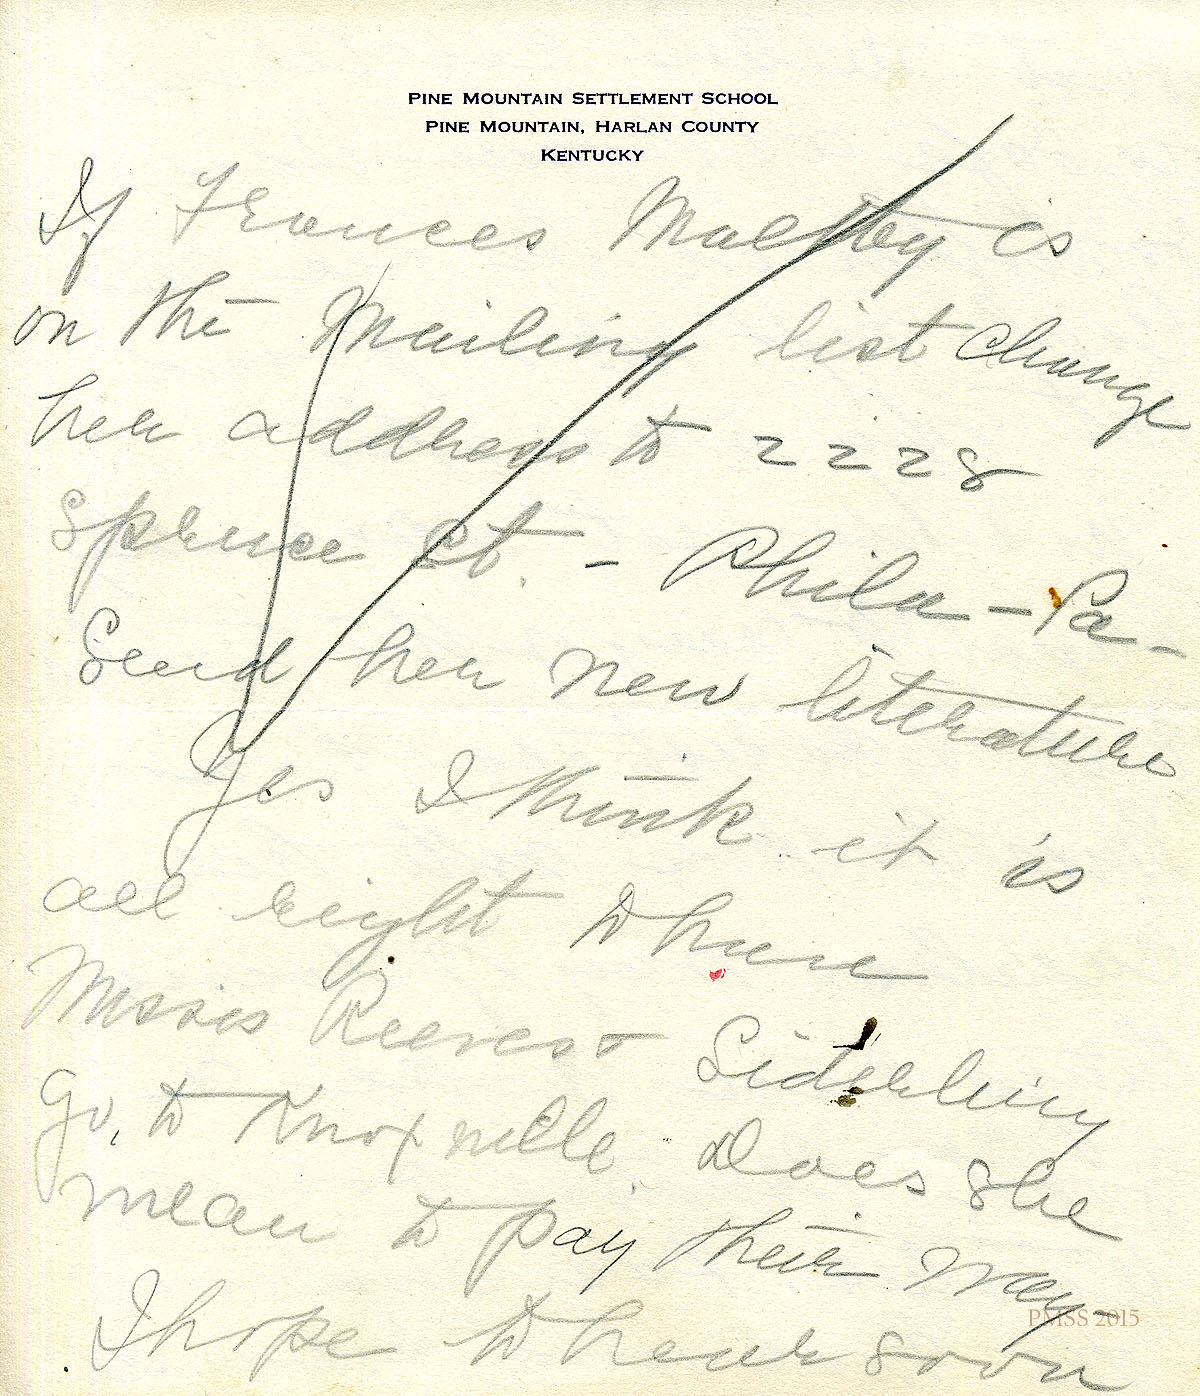 PINE MOUNTAIN SETTLEMENT SCHOOL
PINE MOUNTAIN, HARLAN COUNTY
KENTUCKY
If Frances Maltby is
on the mailing list change
her address to 2228
Spruce St. - Phila - Pa -
Send her new literature
Yes I think it is
all right to have
Misses Reeves + Sidebling
go, to Knoxville. Does she
mean to pay their way -
I hope to hear soon
PMSS 2015